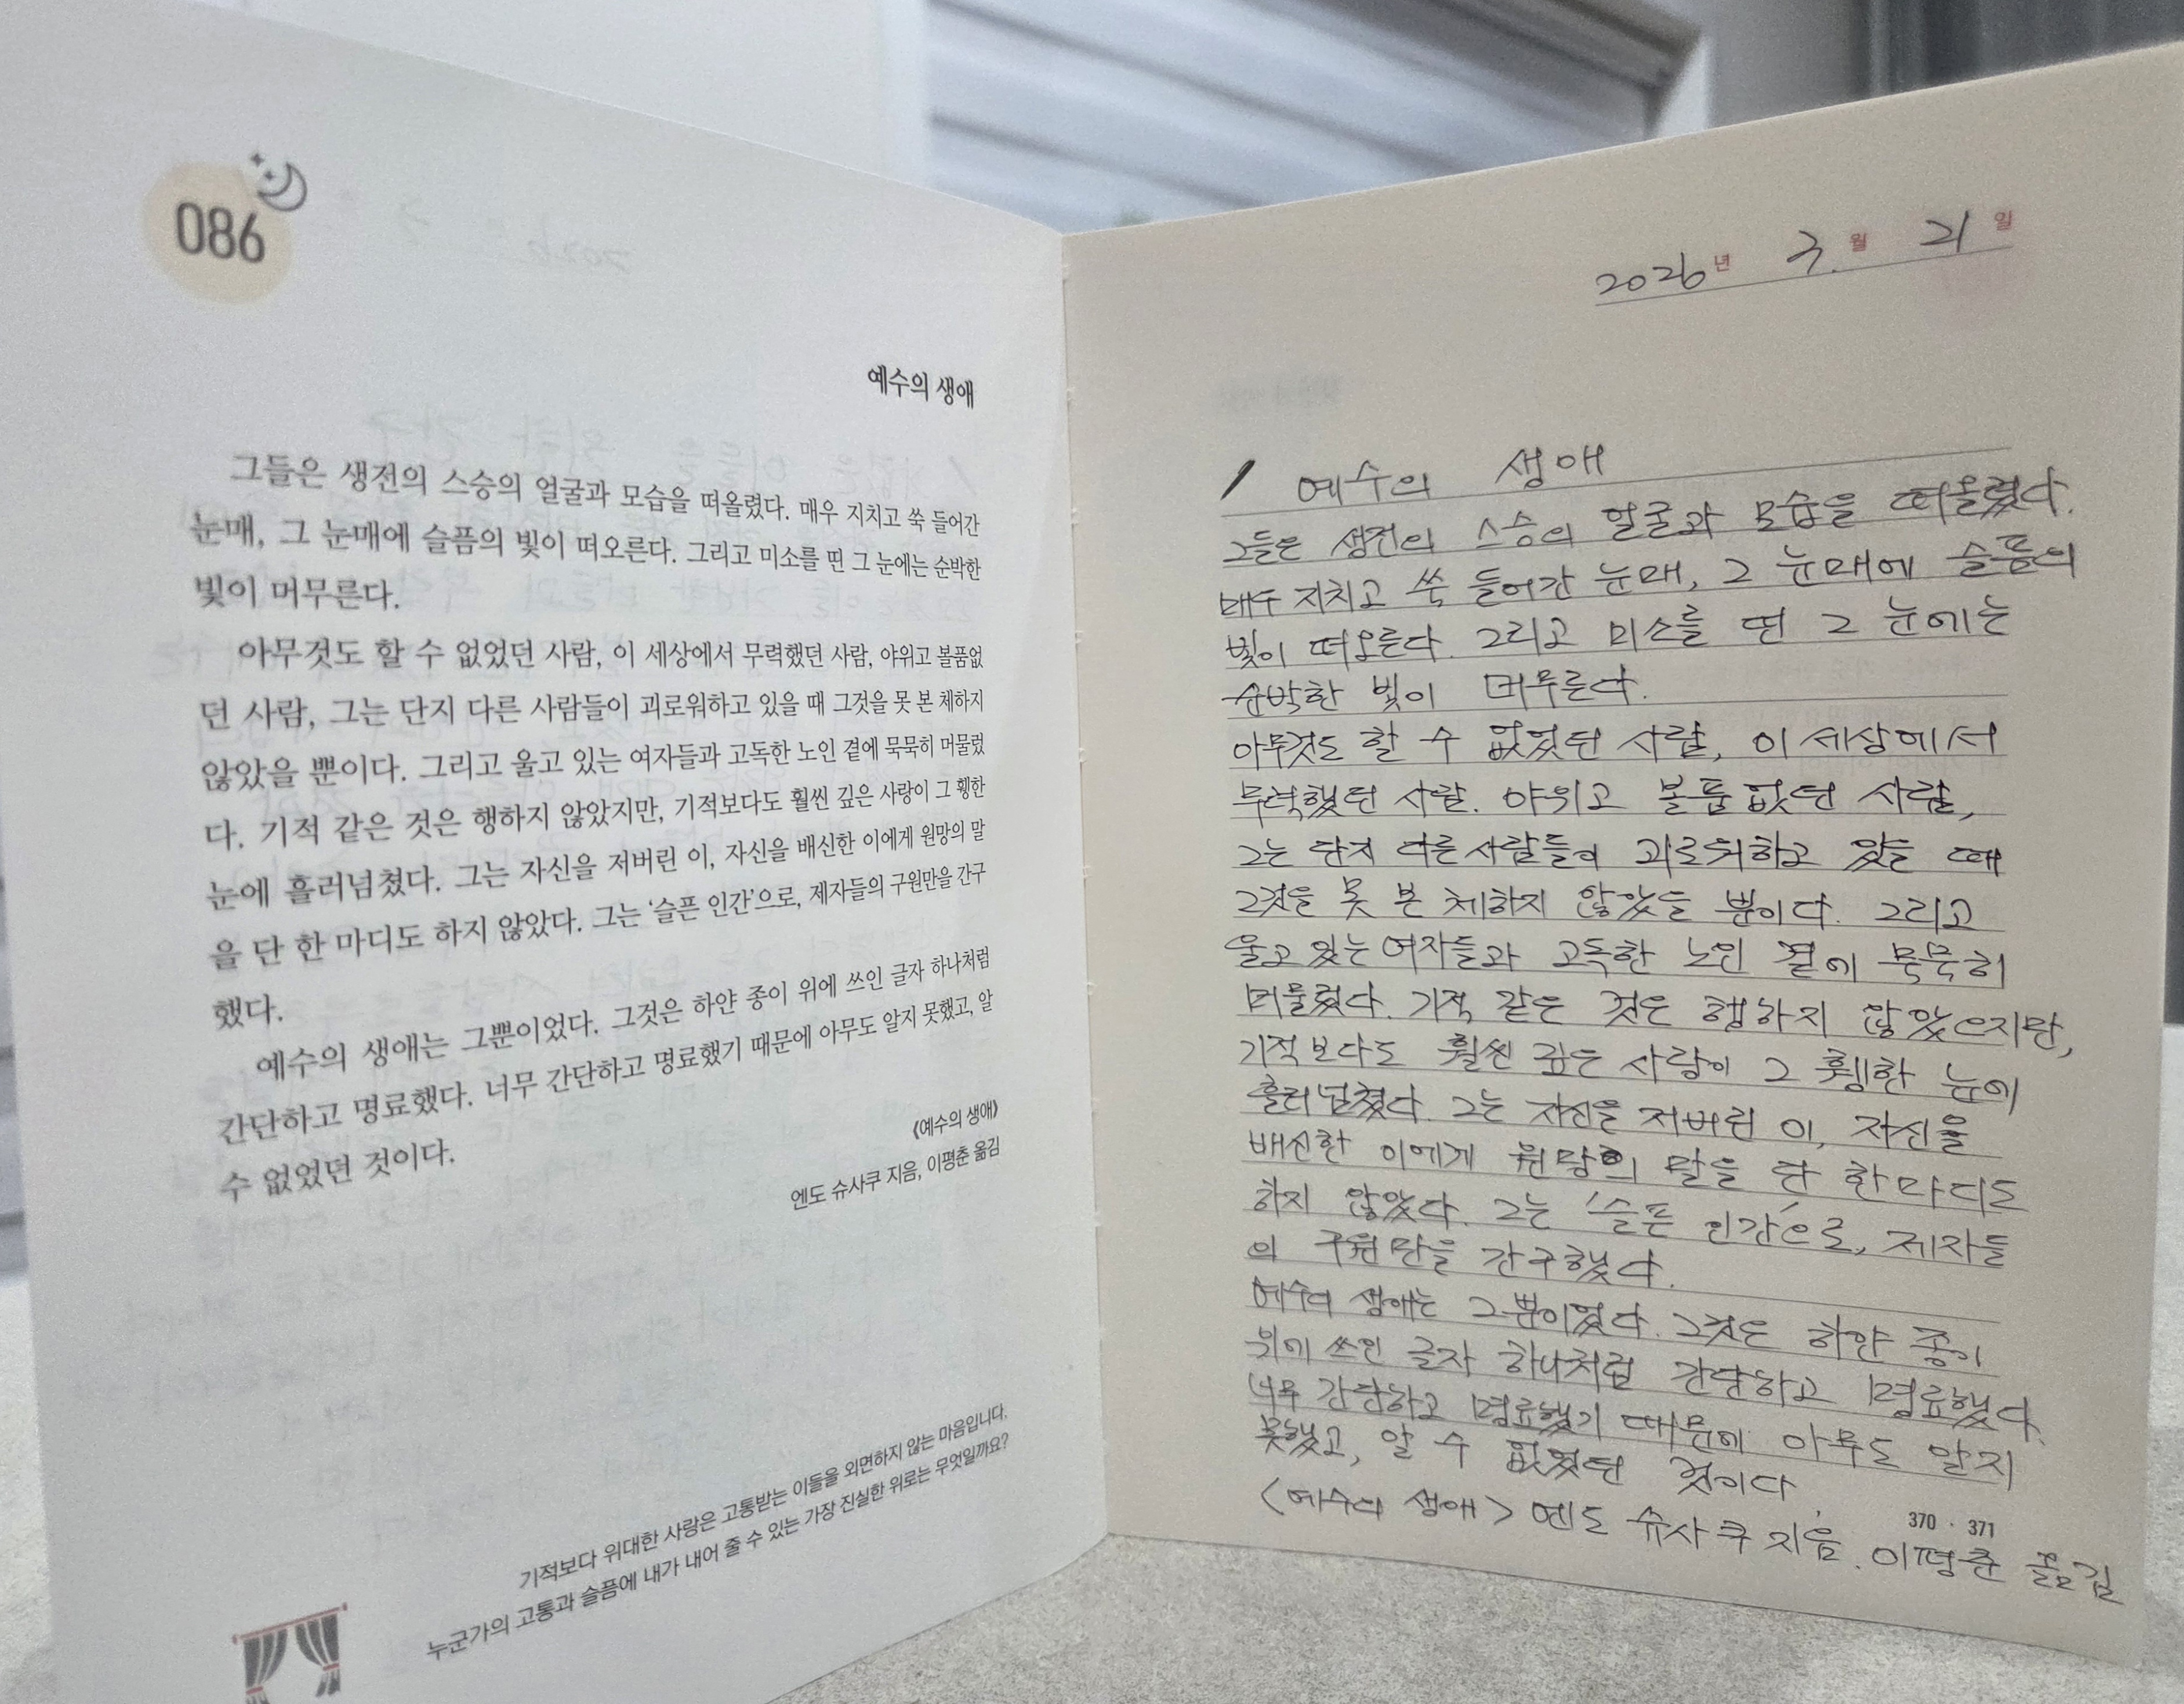 086
예수의 생애
그들은 생전의 스승의 얼굴과 모습을 떠올렸다. 매우 지치고 쑥 들어간
눈매, 그 눈매에 슬픔의 빛이 떠오른다. 그리고 미소를 띤 그 눈에는 순박한
빛이 머무른다.
아무것도 할 수 없었던 사람, 이 세상에서 무력했던 사람, 야위고 볼품없
던 사람, 그는 단지 다른 사람들이 괴로워하고 있을 때 그것을 못 본 체하지
않았을 뿐이다. 그리고 울고 있는 여자들과 고독한 노인 곁에 묵묵히 머물렀
다. 기적 같은 것은 행하지 않았지만, 기적보다도 훨씬 깊은 사랑이 그 휑한
눈에 흘러넘쳤다. 그는 자신을 저버린 이, 자신을 배신한 이에게 원망의 말
을 단 한 마디도 하지 않았다. 그는 ‘슬픈 인간’으로, 제자들의 구원만을 간구
했다.
예수의 생애는 그뿐이었다. 그것은 하얀 종이 위에 쓰인 글자 하나처럼
간단하고 명료했다. 너무 간단하고 명료했기 때문에 아무도 알지 못했고, 알
수 없었던 것이다.
《예수의 생애》
엔도 슈사쿠 지음, 이평춘 옮김
기적보다 위대한 사랑은 고통받는 이들을 외면하지 않는 마음입니다.
누군가의 고통과 슬픔에 내가 내어 줄 수 있는 가장 진실한 위로는 무엇일까요?
2026년 3.월 21일
예수의 생애
그들은 생전의 스승의 얼굴과 모습을 떠올렸다.
매우 지치고 쑥 들어간 눈매, 그 눈매에 슬픔의
빛이 떠오른다. 그리고 미소를 띤 그 눈에는
순박한 빛이 머무른다.
아무것도 할 수 없었던 사람, 이 세상에서
무력했던 사람. 야위고 볼품없던 사람,
그는 단지 다른 사람들이 괴로워하고 있을 때
그것을 못 본 체하지 않았을 뿐이다. 그리고
울고 있는 여자들과 고독한 노인 곁에 묵묵히
머물렀다. 기적 같은 것은 행하지 않았으지만,
기적보다도 훨씬 깊은 사랑이 그 휑한 눈에
흘러넘쳤다. 그는 자신을 저버린 이, 자신을
배신한 이에게 원망의 말을 단 한마디도
하지 않았다. 그는 '슬픈 인간'으로, 제자들
의 구원만을 간구했다.
예수의 생애는 그뿐이었다. 그것은 하얀 종이
위에 쓰인 글자 하나처럼 간단하고 명료했다.
너무 간단하고 명료했기 때문에 아무도 알지
못했고, 알 수 없었던 것이다.
<예수의 생애> 엔도 슈사쿠 지음. 이평춘 옮김
370 · 371